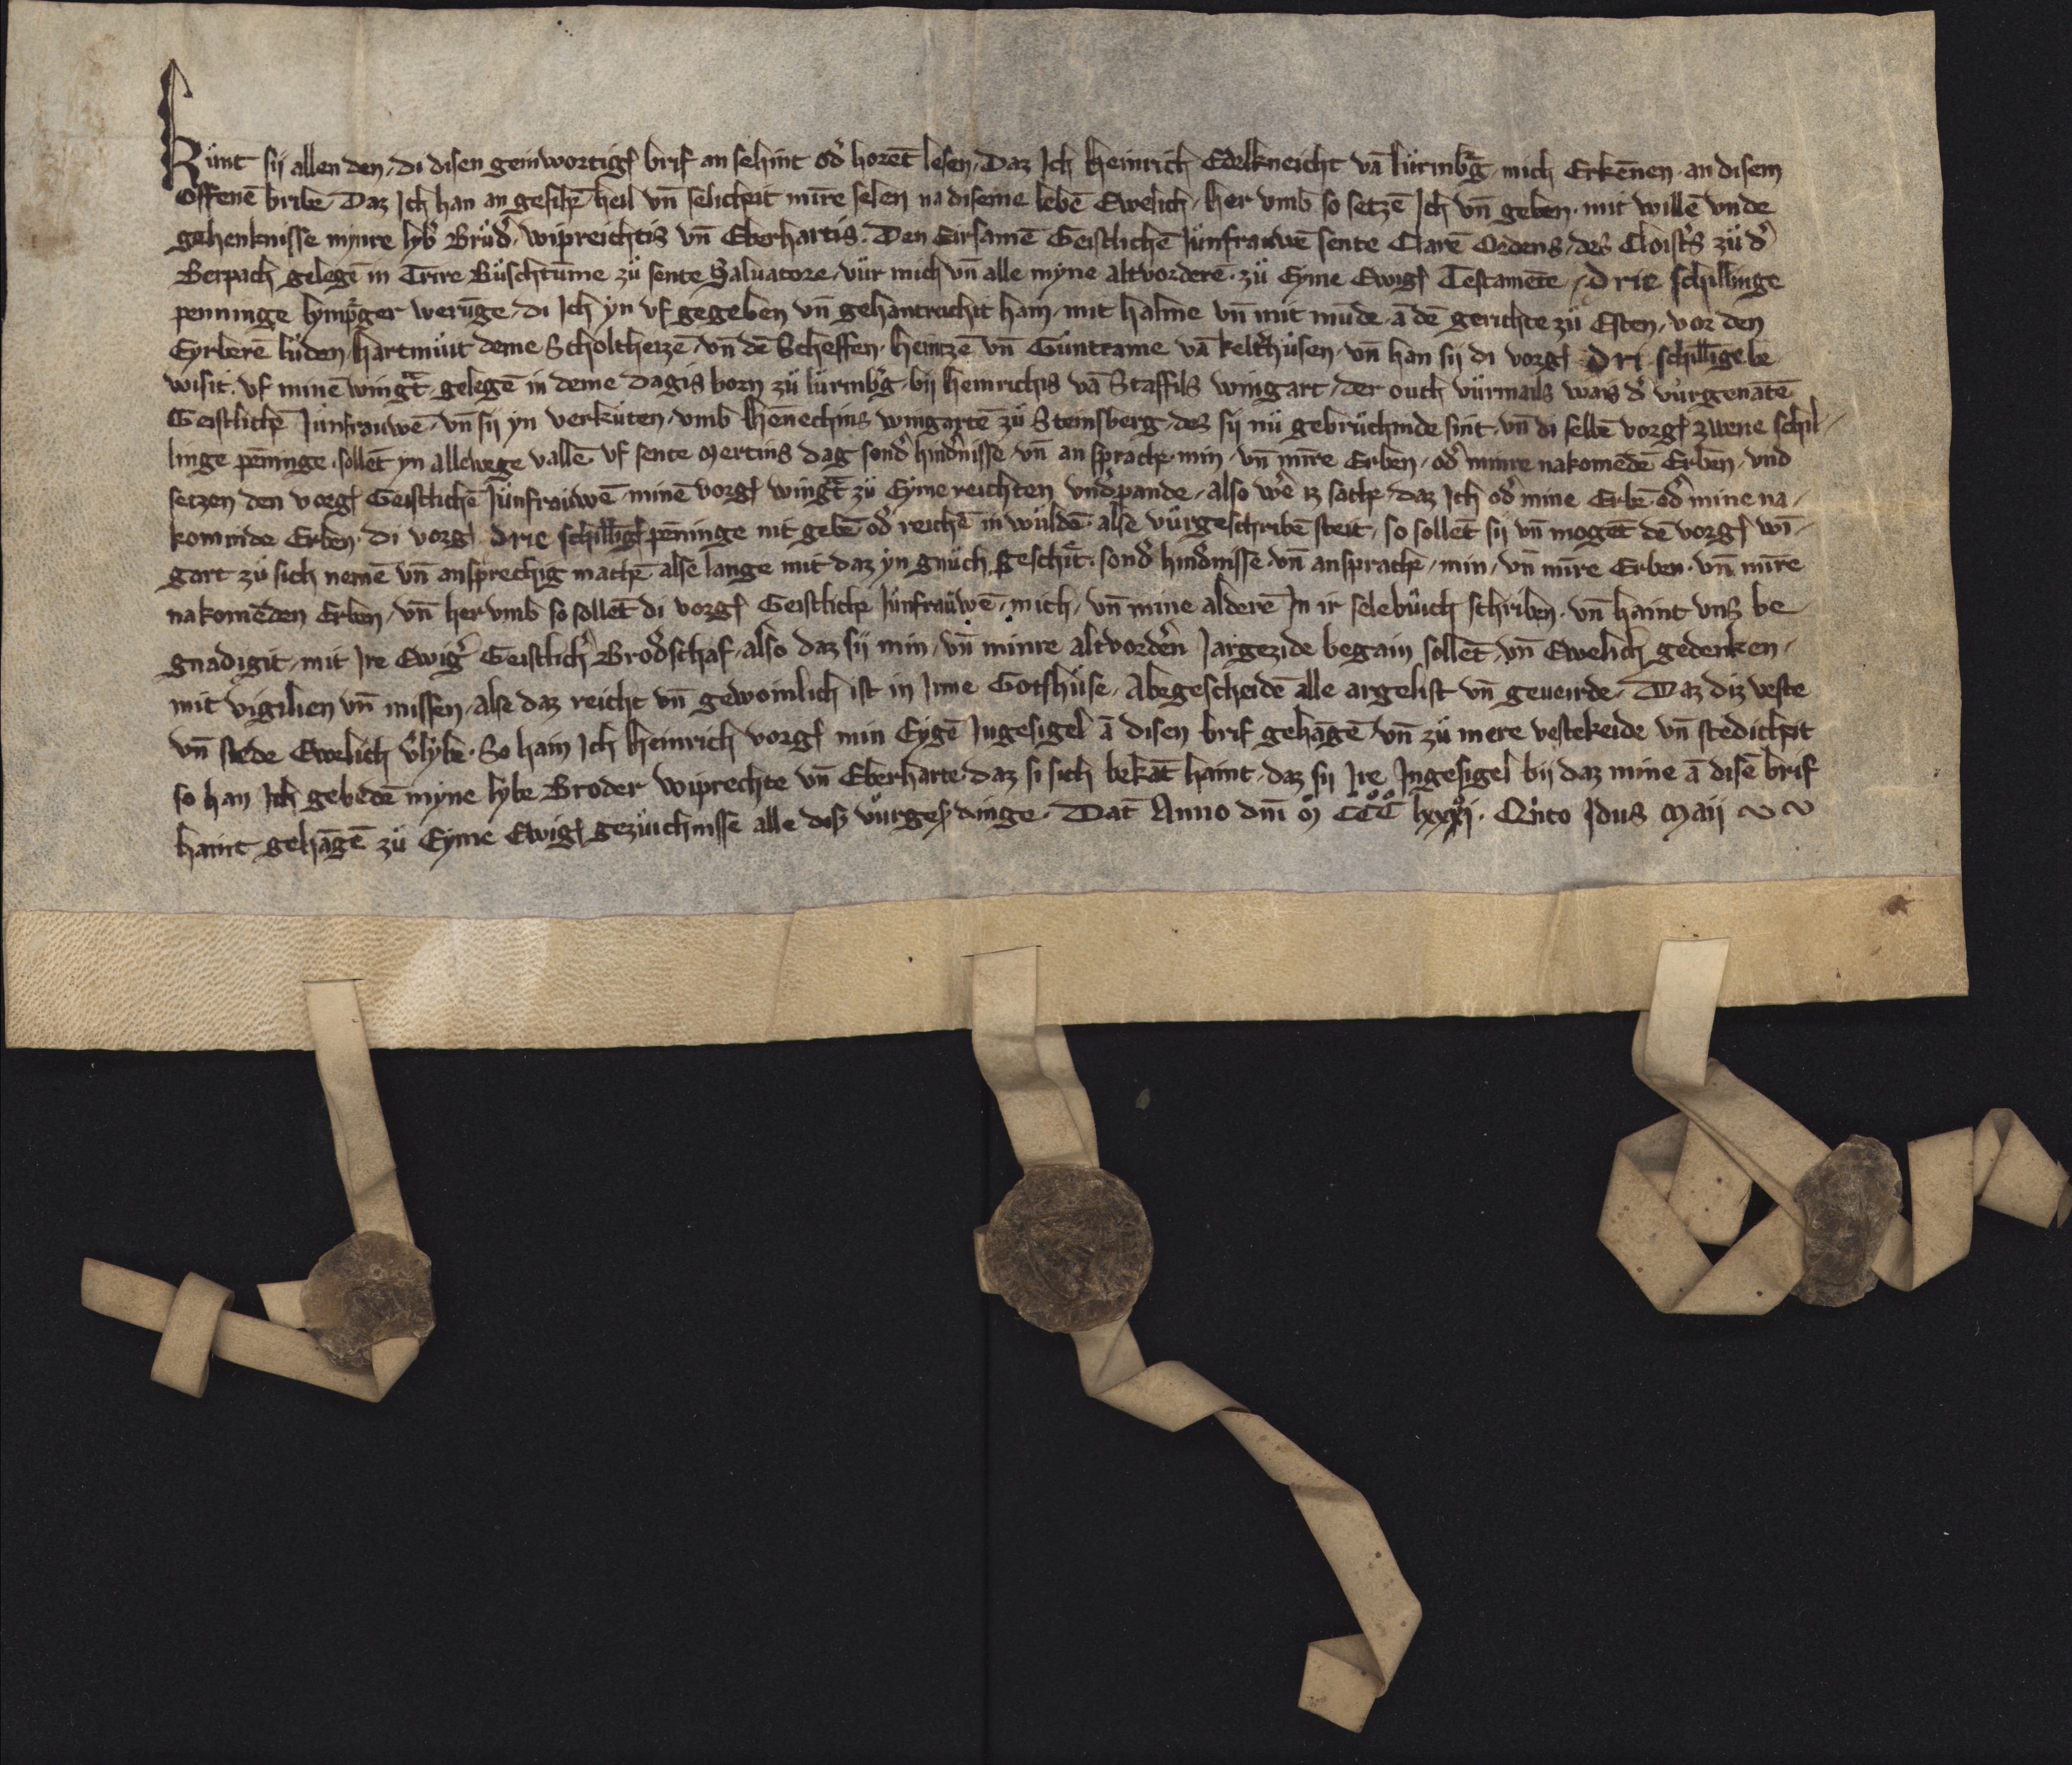 Kůnt sij allen den, di disen geinwortigē brif an sehint od' horēt lesen, Daz Ich Heinrich Edelkneicht vā lůrmb'g, mich Erkēnen an disem
Offenē bribe, Daz Ich han an gesihē heil vn̄ selicheit mīre selen na diseme lebē Ewelich, her vmb so setzē Ich vn̄ geben, mit willē vnde
gehenknisse mynre lyb' Brůd', wipreichtis vn̄ Eberhartis, Den Eirsamē Geistlichē Jůnfrauwē sente Clarē Ordens, des Cloist's zů d'
Berpach gelegē in Trire Bůschtūme zů sente Saluatore, vůr mich vn̄ alle myne altvorderē, zů Eyme Ewigē Testamēte, drie schillinge
penninge lymp'ger werūge, di Ich yn vf gegeben vn̄ gehantreichit hain, mit halme vn̄ mit mūde, ā dē gerichte zů Esten, vor den
Eyrberē lůden, Hartmůit deme Scholtheizē, vn̄ dē Scheffen, Heintzē vn̄ Gůntrame vā kelkhůsen, vn̄ han sij di vorgē dri schillīge be
wisit, vf minē wingt gelegē in deme dagis born zů lůrmb'g, bij Heinrichis vā Staffils wingart, der ouch vůrmails wais d' vůrgenātē
Geistlichē Jůnfrauwē, vn̄ sij yn verkůten, vmb Hēnechins wingartē zů Steinsberg, des sij nů gebrůchinde sint, vn̄ di selbē vorgē zwene schil-
linge pēninge, sollēt yn allewege vallē vf sente Mertins dag sond' hind'nisse vn̄ an sprache min, vn̄ mīre Erben, od' minre nakomēdē Erben, vnd
setzen den vorgē Geistlichē Jůnfrauwē, minē vorgē wingt zů Eyme reichten vnd'pande, also w'e iz sache, daz Ich od' mine Erbē od' mine na-
kominde Erben, di vorgē drie schillīgē pēninge nit gebē od' reichē in wůldē, alse vůrgeschribē steit, so sollēt sij vn̄ mogēt dē vorgē wī-
gart zů sich nemē vn̄ ansprechig machē alse lange mit daz yn gnůch geschit, sond' hind'nisse vn̄ ansprache, min, vn̄ mīre Erben, vn̄ mīre
nakomēden Erben, vn̄ her vmb so sollēt di vorgē Geistlichē Jůnfrauwē, mich, vn̄ mine alderē In ir selebůich schriben, vn̄ haint vns be-
gnadigit, mit Ire Ewig' Geistlich' Brod'schaf, also daz sij min, vn̄ minre altvord'en Jargezide begain sollēt, vn̄ Ewelich gedenken,
mit vigilien vn̄ missen, alse daz reicht vn̄ gewoinlich ist in Irme Gotshůse, Abegescheidē alle argelist vn̄ geueirde, Daz diz veste
vn̄ stede Ewelich v'lybe, So hain Ich Heinrich vorgē min Eygē Ingesigel ā disen brif gehāgē vn̄ zů mere vestekeide vn̄ stedicheit
so han Ich gebedē myne lybe Broder wiprechte vn̄ Eberharte, daz si sich bekāt haint, daz sij Ire Ingesigel bij daz mine ā disē brif
haint gehāgē zů Eyme Ewigē gezůichnisse alle dis' vůrges' dinge. Dat Anno dn̄i M CCC lxxxi. Qu'nto Idus Maij